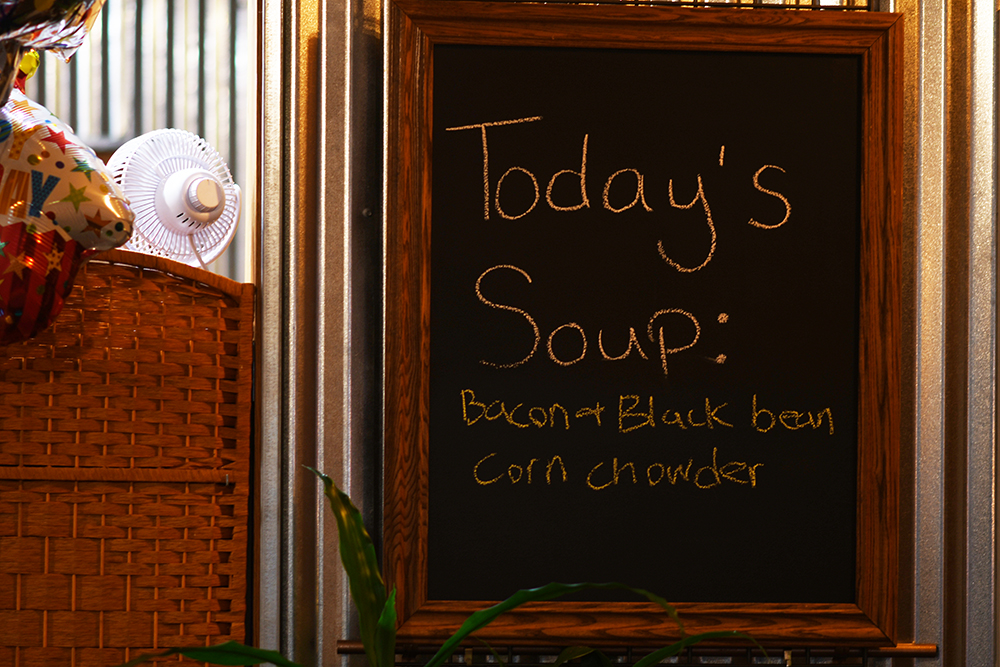 Today's
Soup:
Bacon + Black bean
Corn chowder